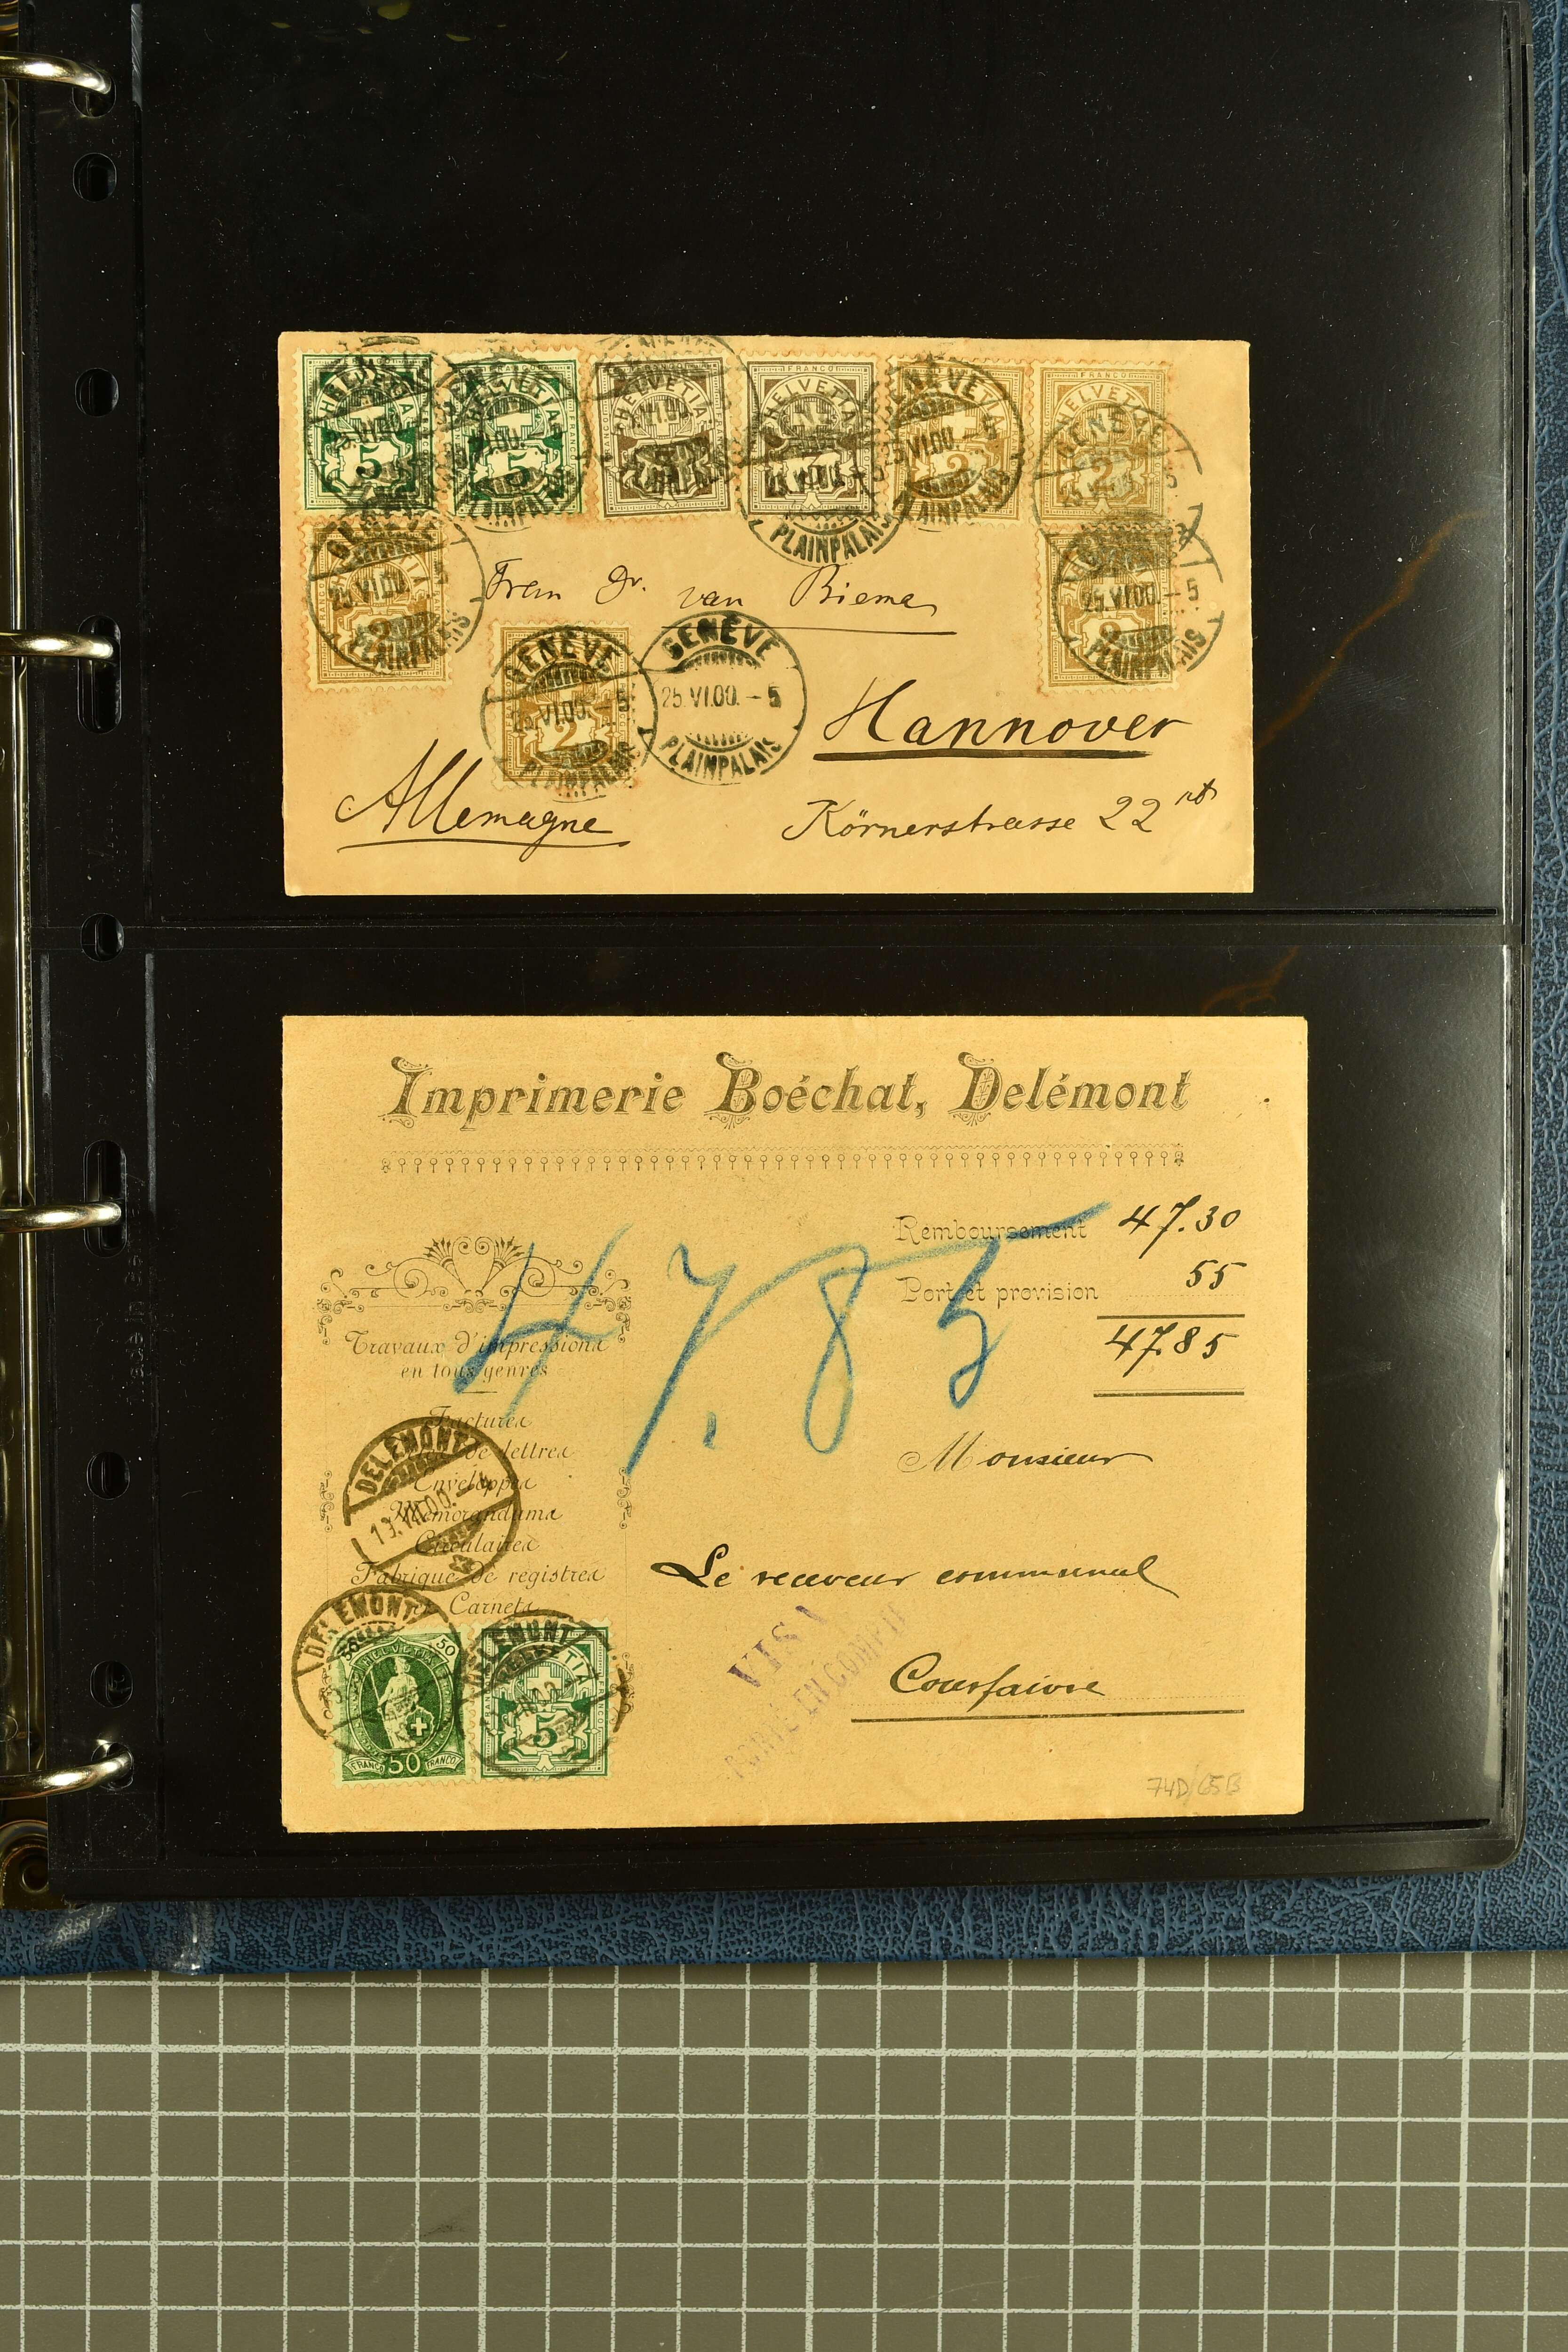 FRANCO
HELVETIA
5
HELVETIA
5
HELVETIA
FRANCO
HELVETIA
2
FRANCO
HELVETIA
2
GENÈVE
25.VI.00.–5
PLAINPALAIS
2
2
2
Frau Dr. van Biema
GENÈVE
25.VI.00.–5
PLAINPALAIS
Hannover
Allemagne
Körnerstrasse 22
Imprimerie Boéchat, Delémont
Remboursement 47.30
Port et provision 55
47.85
47.85
Travaux d'impressions
en tous genres
Factures
de lettres
Enveloppes
Memorandums
Circulaires
Fabrique de registres
et Carnets
DELÉMONT
Monsieur
Le receveur communal
Courfaivre
VISA
PORTÉ EN COMPTE
DELÉMONT
50
HELVETIA
FRANCO 50 FRANCO
DELÉMONT
5
74D/65B